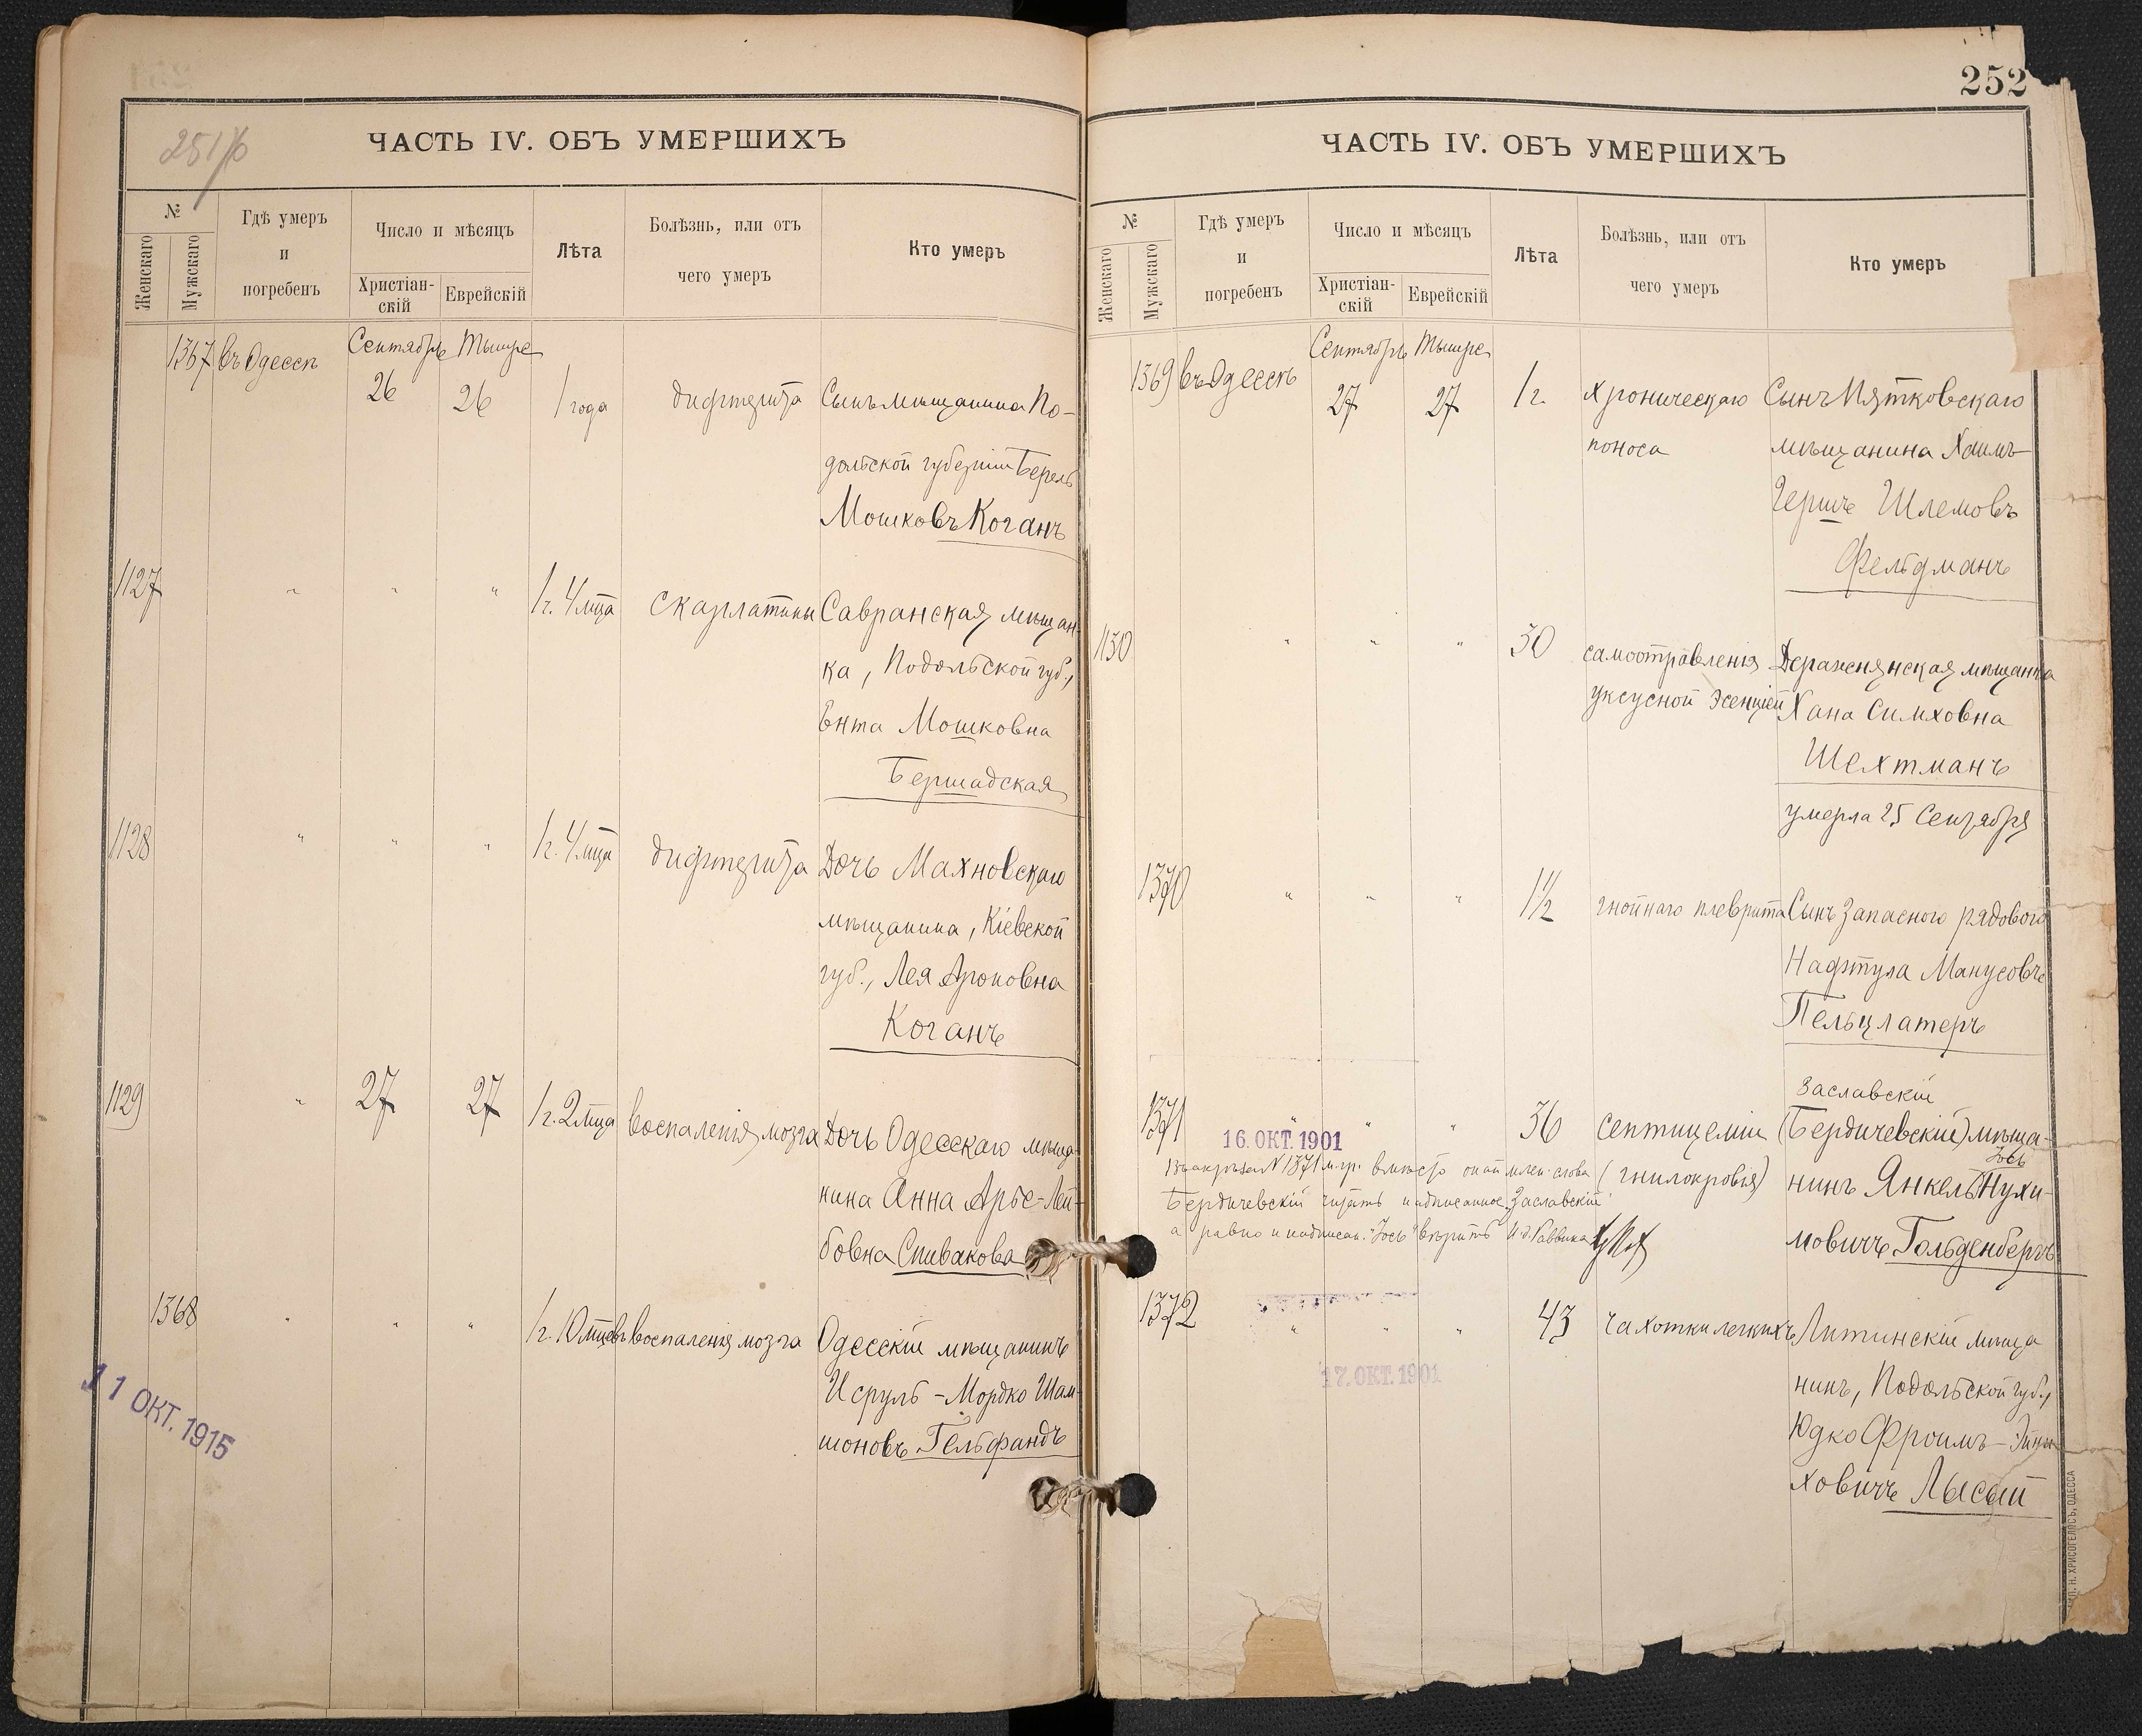 251/б
ЧАСТЬ IV. ОБЪ УМЕРШИХЪ
№
Женскаго
Мужскаго
Гдѣ умеръ
и
погребенъ
Число и мѣсяцъ
Христіан-
скій
Еврейскій
Лѣта
Болѣзнь, или отъ
чего умеръ
Кто умеръ
1367 въ Одессѣ Сентябрь Тышре
26 26 1 года дифтерита Сынъ мѣщанина По-
дольской губерніи Берель
Мошковъ Коганъ
1127 " " " 1 г. 4 мца скарлатины Савранская мѣщан-
ка, Подольской губ.,
Ента Мошковна
Бершадская
1128 " " " 1 г. 4 мца дифтерита Дочь Махновскаго
мѣщанина, Кіевской
губ., Лея Ароновна
Коганъ
1129 " 27 27 1 г. 2 мца воспаленія мозга Дочь Одесскаго мѣща-
нина Анна Арье-Лей-
бовна Спивакова
1368 " " " 1 г. 10 мцевъ воспаленія мозга Одесскій мѣщанинъ
Исруль-Мордко Шам-
шоновъ Гельфандъ
11 ОКТ. 1915
252
ЧАСТЬ IV. ОБЪ УМЕРШИХЪ
№
Женскаго
Мужскаго
Гдѣ умеръ
и
погребенъ
Число и мѣсяцъ
Христіан-
скій
Еврейскій
Лѣта
Болѣзнь, или отъ
чего умеръ
Кто умеръ
1369 въ Одессѣ Сентябрь Тышре
27 27 1 г. хроническаго Сынъ Пятковскаго
поноса мѣщанина Хаимъ-
Гершъ Шлемовъ
Фельдманъ
1130 " " " 30 самоотравленія Деражнянская мѣщанка
уксусной эсенціей Хана Симховна
Шехтманъ
умерла 25 Сентября
1370 " " " 1½ гнойнаго плеврита Сынъ запаснаго рядового
Нафтула Манусовъ
Пельцлатеръ
Заславскій
1371 " " " 36 септицеміи (Бердичевскій) мѣща-
16. ОКТ. 1901
Зось
(гнилокровія) нинъ Янкель Нухи-
мовичъ Гольденбергъ
Въ актѣ за N 1371 м.гр. вмѣсто слова
Бердичевскій читать надписанное "Заславскій"
а равно и надписан. "Зось" вѣрить И.д. Раввина
1372 " " " 43 чахотки легкихъ Литинскій мѣща
нинъ, Подольской губ.,
17. ОКТ. 1901
Юдко Фроимъ-
ховичъ Лысый
Н. ХРИСОГЕЛОСЪ, ОДЕССА